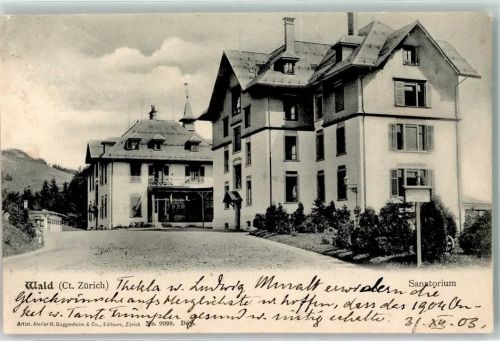 Wald (Ct. Zürich)
Sanatorium
Thekla u. Ludwig Muralt erwidern die
Glückwünsche aufs Herzlichste u. hoffen, dass das 1904 On-
kel u. Tante Trümpler gesund u. rüstig erhalte. 31. XII. 03.
Artist. Atelier H. Guggenheim & Co., Editeurs, Zürich No. 9990. Dép.